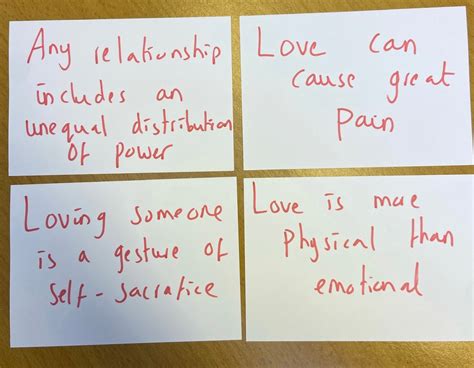 Any relationship
includes an
unequal distribution
of power
Love can
cause great
pain
Loving someone
is a gesture of
self-sacrafice
Love is more
physical than
emotional